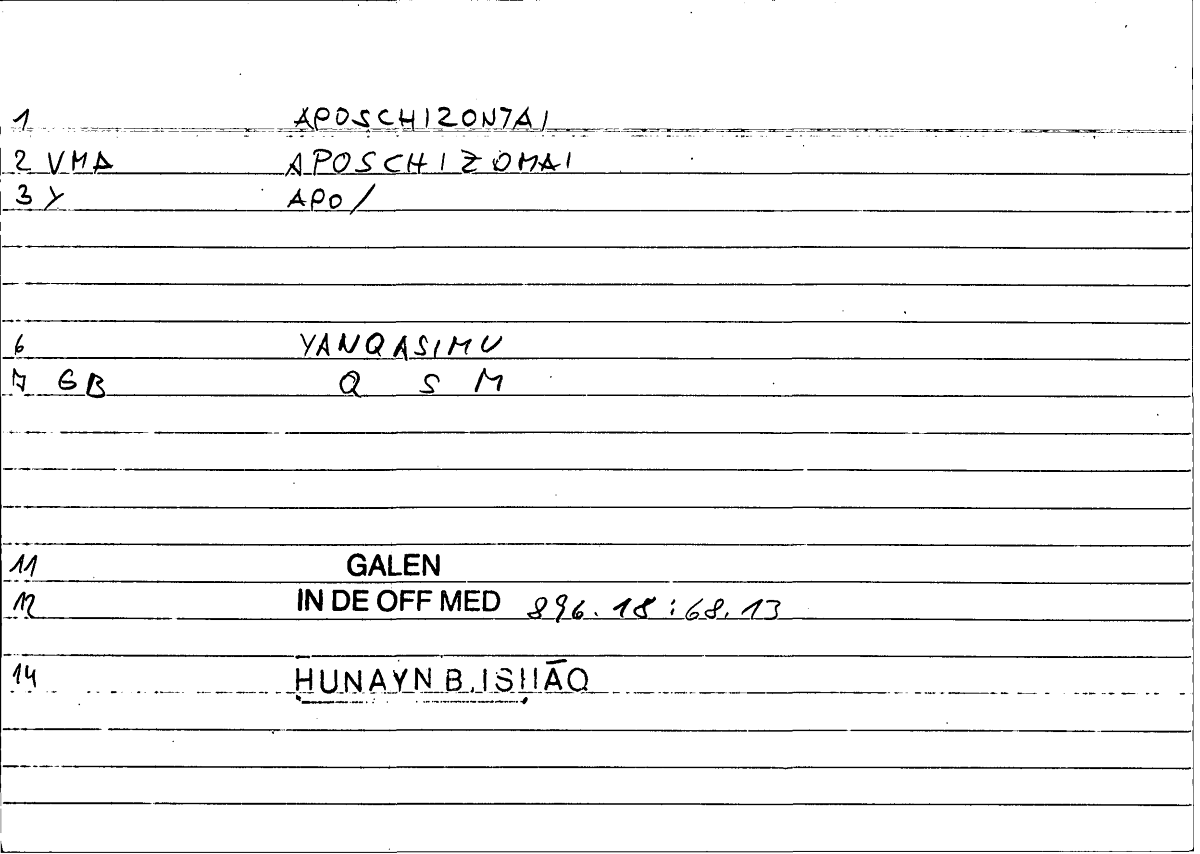 1 APOSCHIZONTAI
2 VMA APOSCHIZOMAI
3 Y APO/
6 YANQASIMU
7 GB Q S M
11 GALEN
12 IN DE OFF MED 896.18:68.13
14 HUNAYN B.ISḤĀQ